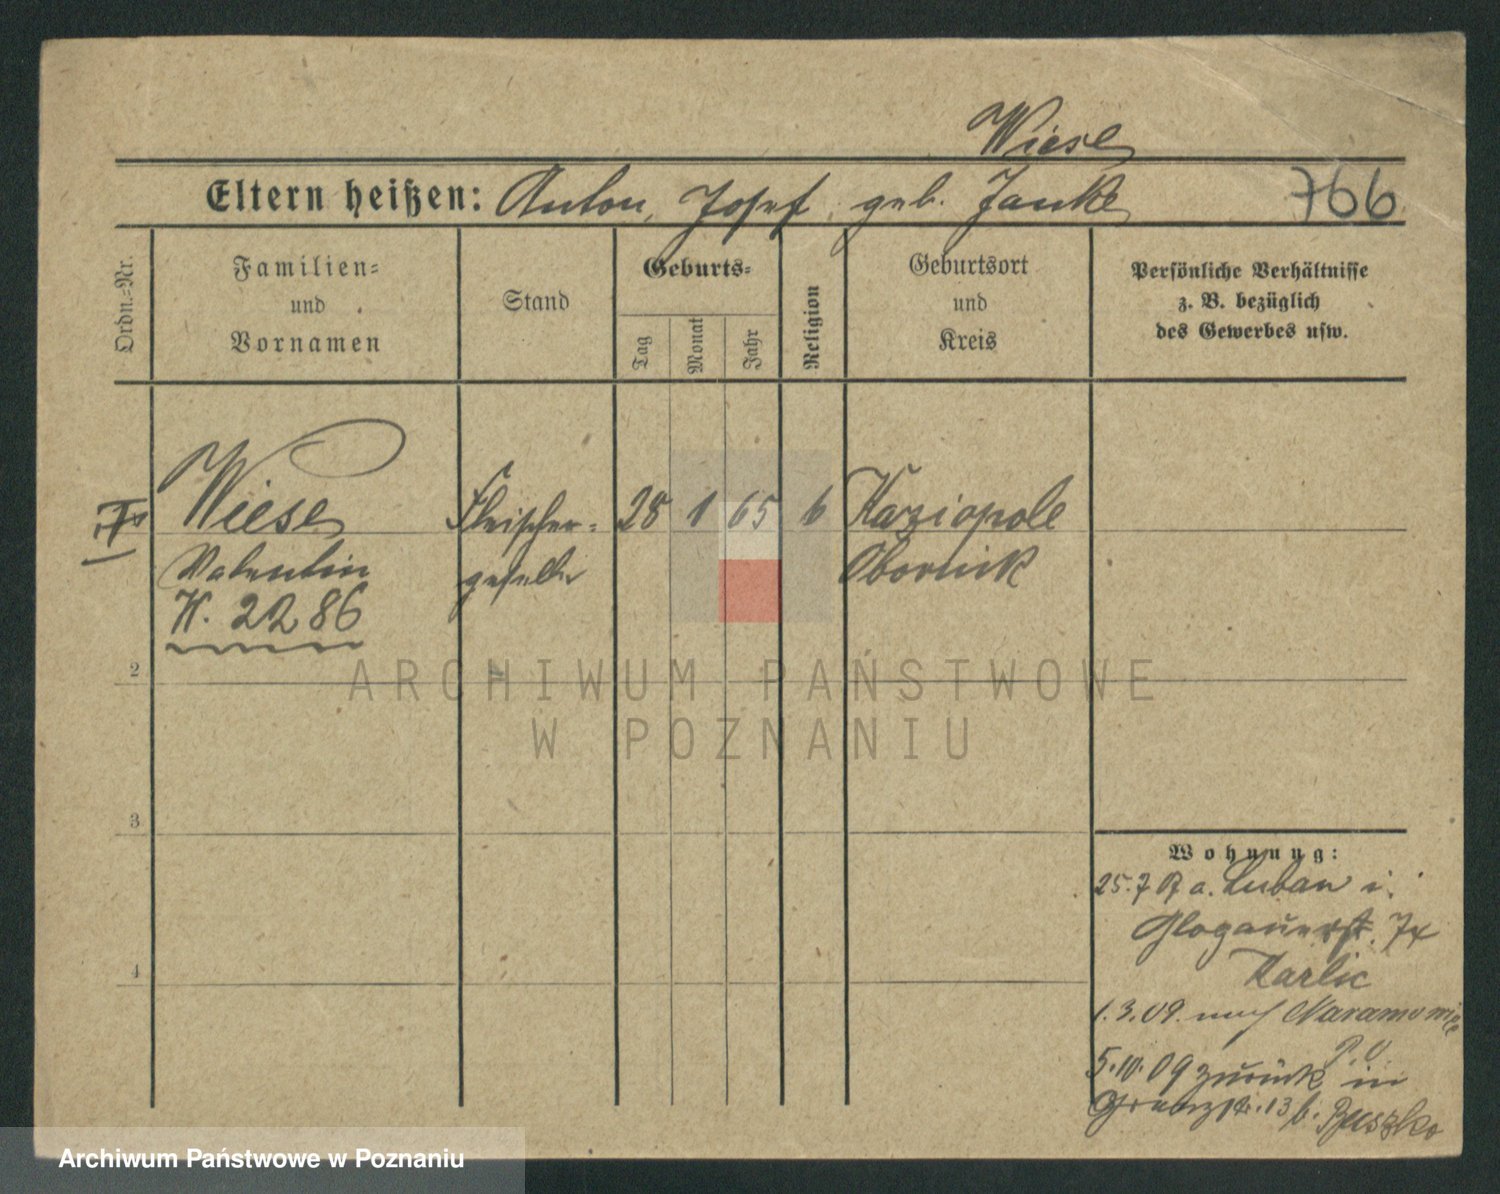 Wiese
Eltern heißen: Anton, Josef geb. Janke 766
Ordn.-Nr.
Familien-
und
Vornamen
Stand
Geburts-
Tag
Monat
Jahr
Religion
Geburtsort
und
Kreis
Persönliche Verhältnisse
z. B. bezüglich
des Gewerbes usw.
Wiese Fleischer- 28 1 65 Kaziopole
Valentin geselle Obornik
K. 2286
2
3
4
Wohnung:
25.7 a. Luban i.
Glogauerst.
Karlic
1.3.09. nach Naramowice
P. O.
5.10.09 zurück in
13 b. Buszko
ARCHIWUM PAŃSTWOWE
W POZNANIU
Archiwum Państwowe w Poznaniu